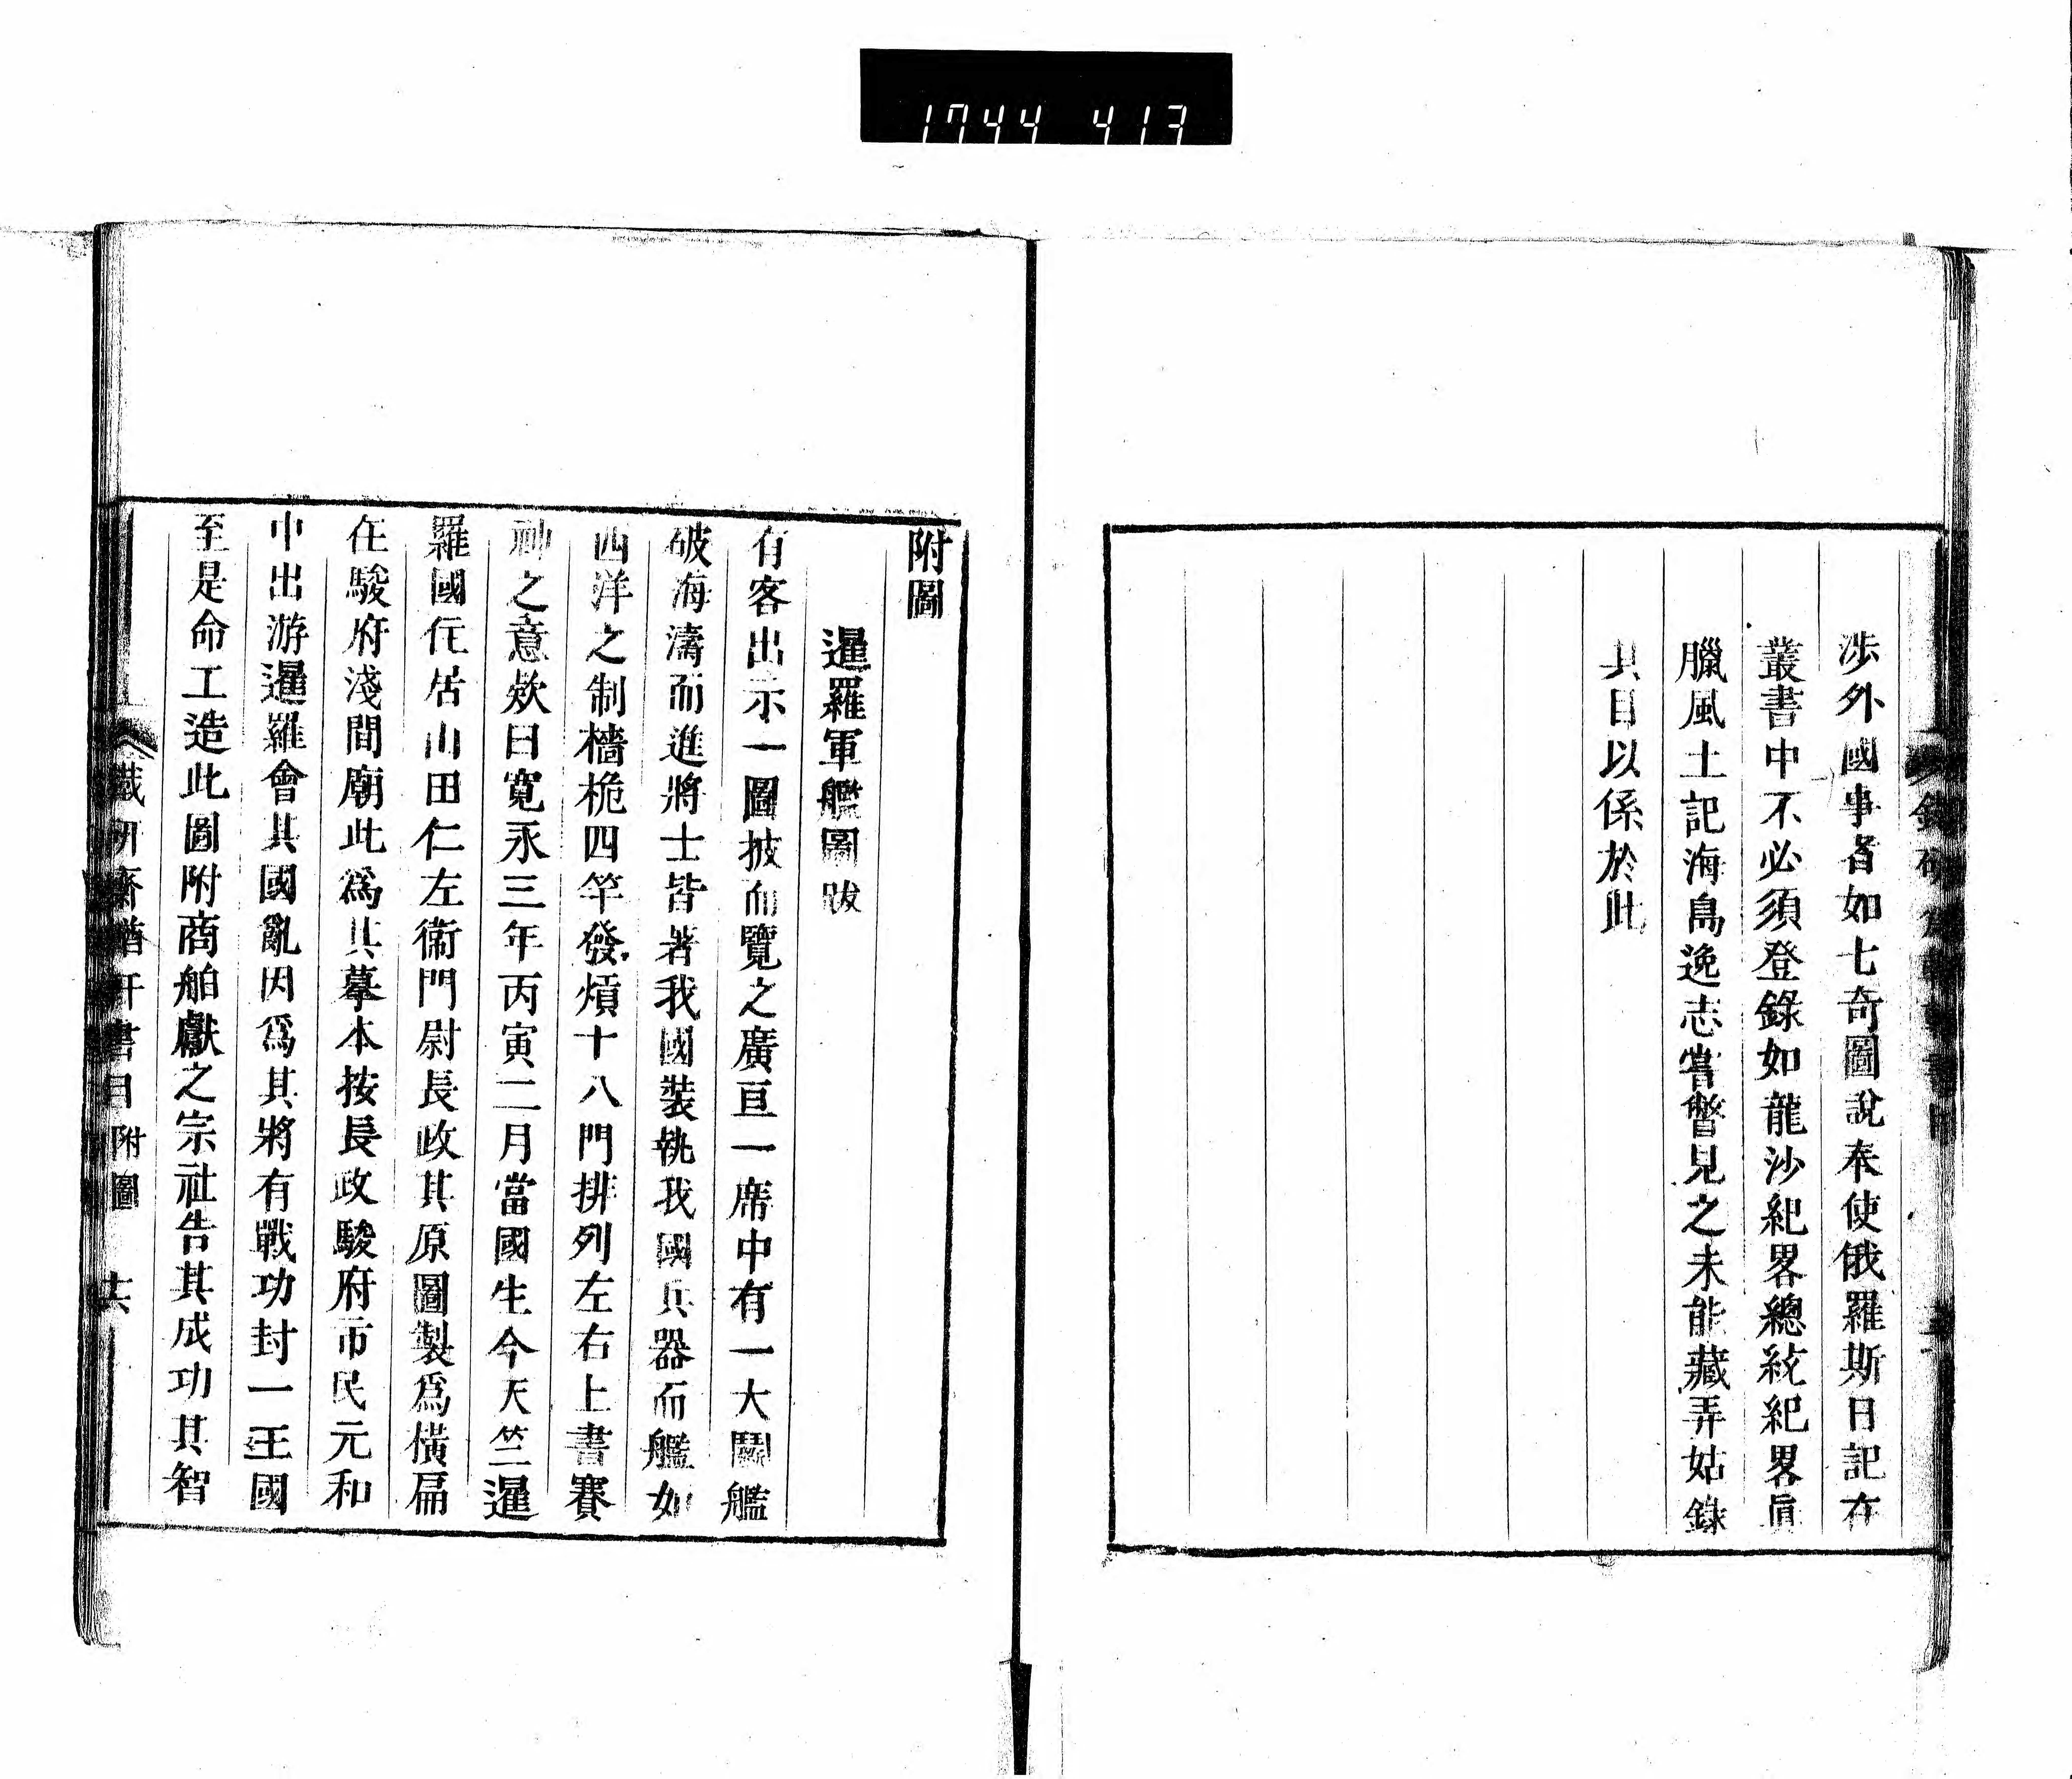 1744 413
涉外國事者如七奇圖說奉使俄羅斯日記在
叢書中不必須登錄如龍沙紀畧總統紀畧眞
臘風土記海島逸志嘗瞥見之未能藏弆姑錄
其目以係於此
附圖
暹羅軍艦圖跋
有客出示一圖披而覽之廣亘一席中有一大鬭艦
破海濤而進將士皆著我國裝執我國兵器而艦如
西洋之制檣桅四竿發熕十八門排列左右上書賽
神之意欵曰寛永三年丙寅二月當國生今天竺暹
羅國仛居山田仁左衞門尉長政其原圖製爲橫扁
在駿府淺間廟此爲其摹本按長政駿府市民元和
中出游暹羅會其國亂因爲其將有戰功封一王國
至是命工造此圖附商舶獻之宗社告其成功其智
書目 附圖 十六